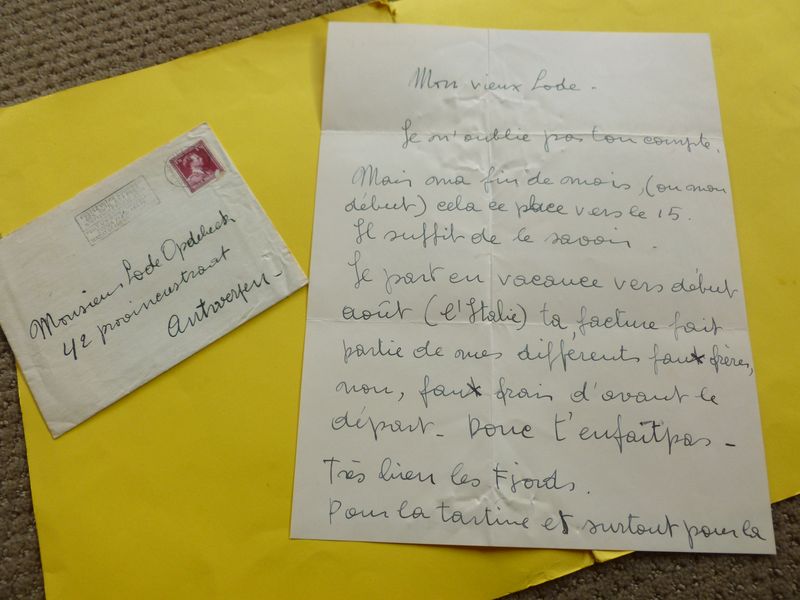 Monsieur Lode Opdebeek
42 provinciestraat
Antwerpen -
Mon vieux Lode.
Je n'oublie pas ton compte.
Mais ma fin de mois, (ou mon
début) cela ce place vers le 15.
Il suffit de le savoir.
Je part en vacance vers début
août (l'Italie) ta facture fait
partie de mes différents faux frères,
non, faux frais d'avant le
départ - Donc t'enfaitpas -
Très bien les Fjords.
Pour la tartine et surtout pour la